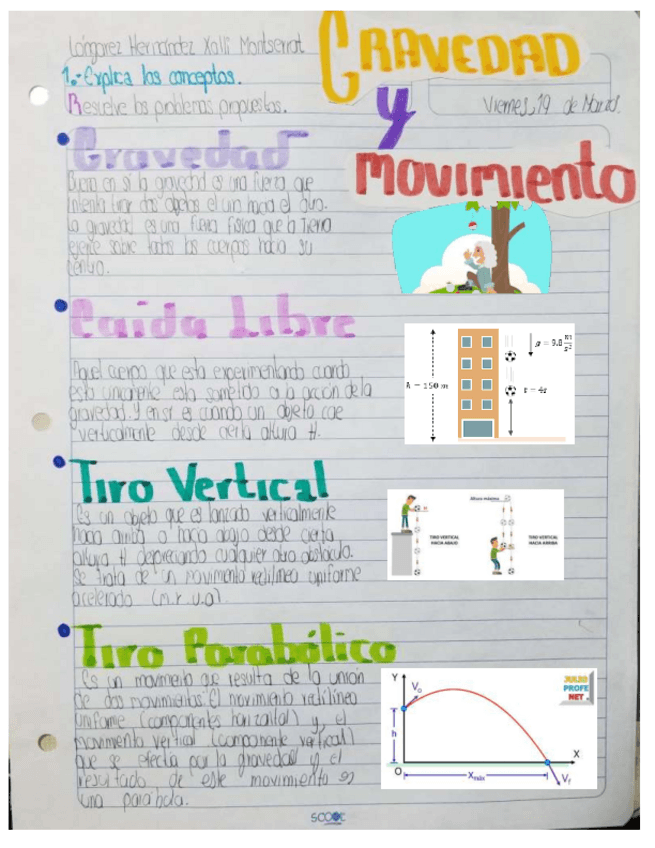 Lóngarez Hernández Xalli Montserrat
GRAVEDAD
1.- Explica los conceptos.
Resuelve los problemas propuestos.
y
Viernes, 19 de Marzo.
Movimiento
Gravedad
Bueno en si la gravedad es una fuerza que
intenta tirar dos objetos el uno hacia el otro.
La gravedad es una fuerza física que la Tierra
ejerce sobre todos los cuerpos hacia su
centro.
Caída Libre
h = 150 m
g = 9.8 m/s²
t = 4s
Aquel cuerpo que esta experimentando cuando
esta unicamente esta sometido a la acción de la
gravedad. Y en si es cuando un objeto cae
verticalmente desde cierta altura H.
Tiro Vertical
Es un objeto que es lanzado verticalmente
hacia arriba o hacia abajo desde cierta
altura H depreciando cualquier otro obstáculo.
Se trata de un movimiento rectilíneo uniforme
acelerado (m.r.u.a).
Altura máxima
TIRO VERTICAL
HACIA ABAJO
TIRO VERTICAL
HACIA ARRIBA
Tiro Parabólico
Es un movimiento que resulta de la unión
de dos movimientos: El movimiento rectilíneo
uniforme (componentes horizontal) y, el
movimiento vertical (componente vertical)
que se efectúa por la gravedad y el
resultado de este movimiento es
una parábola.
Y
Vo
h
O
Xmáx
X
Vf
JULIO
PROFE
NET
SCRIBE